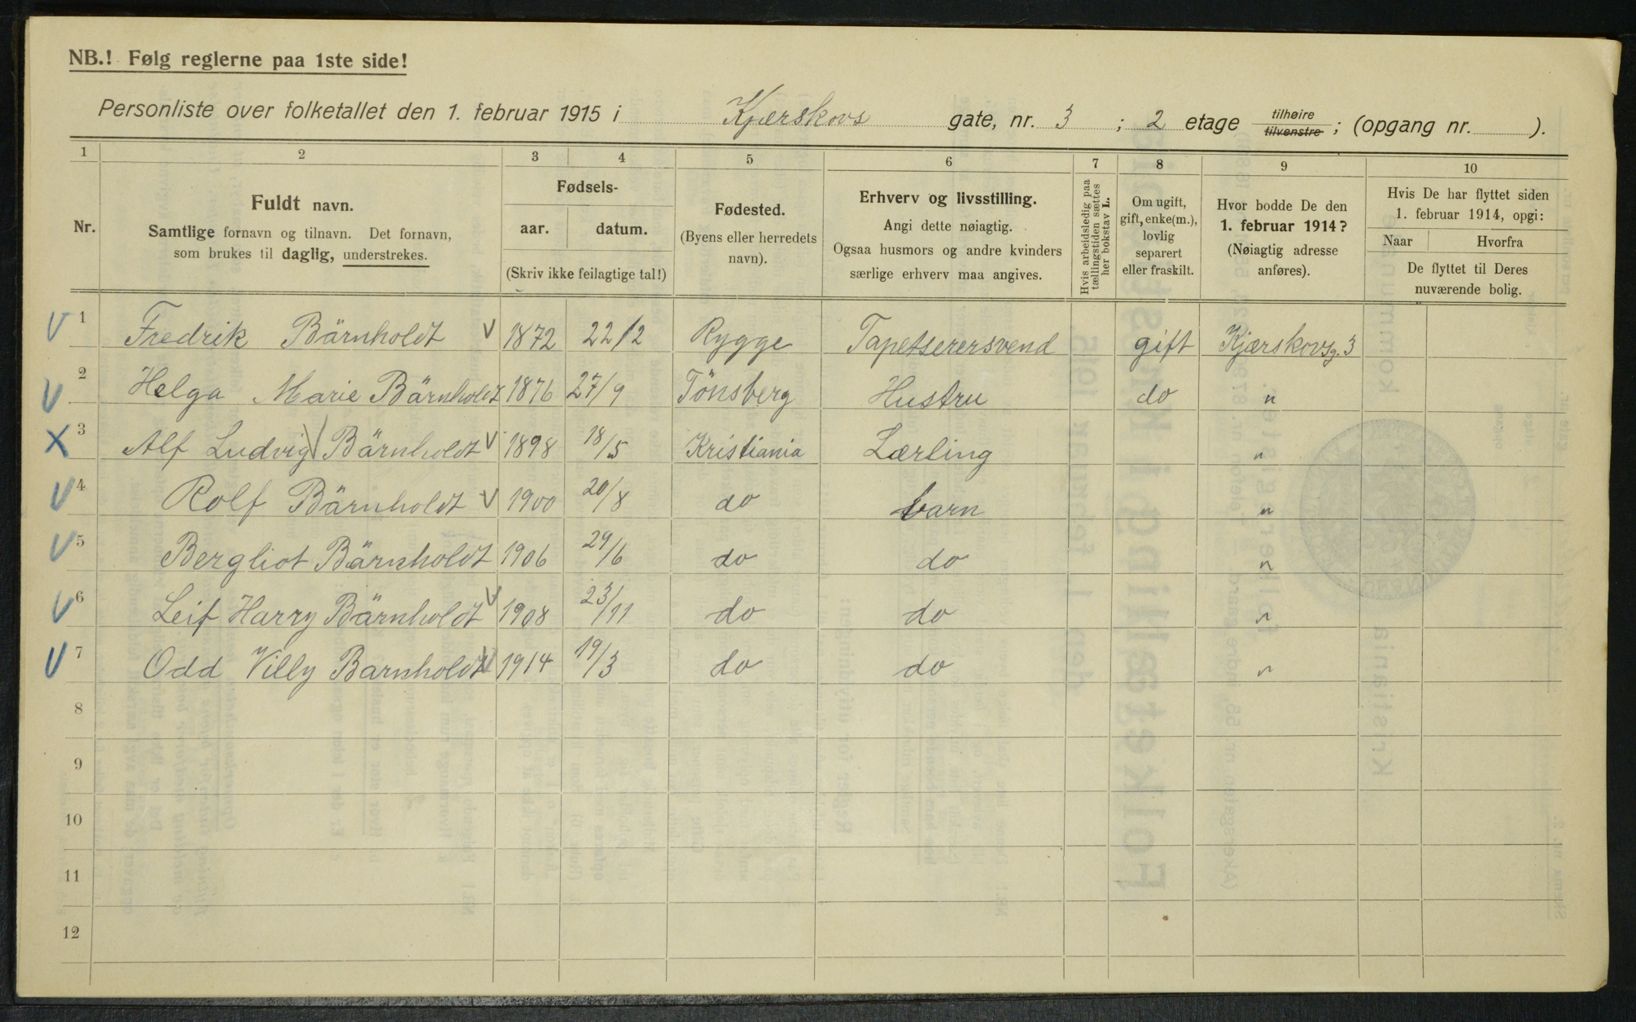 NB.! Følg reglerne paa 1ste side!
Personliste over folketallet den 1. februar 1915 i Kjærskovs gate, nr. 3 ; 2 etage tilhøire tilvenstre ; (opgang nr. ).
1 2 3 4 5 6 7 8 9 10
Nr.
Fuldt navn.
Samtlige fornavn og tilnavn. Det fornavn,
som brukes til daglig, understrekes.
Fødsels-
aar. datum.
(Skriv ikke feilagtige tal!)
Fødested.
(Byens eller herredets
navn).
Erhverv og livsstilling.
Angi dette nøiagtig.
Ogsaa husmors og andre kvinders
særlige erhverv maa angives.
Hvis arbeidsledig paa
tællingstiden sættes
her bokstav L.
Om ugift,
gift, enke(m.),
lovlig
separert
eller fraskilt.
Hvor bodde De den
1. februar 1914?
(Nøiagtig adresse
anføres).
Hvis De har flyttet siden
1. februar 1914, opgi:
Naar Hvorfra
De flyttet til Deres
nuværende bolig.
V 1 Fredrik Bärnholdt V 1872 22/2 Rygge Tapetserersvend gift Kjærskovsg. 3
V 2 Helga Marie Bärnholdt 1876 27/9 Tönsberg Hustru do "
X 3 Alf Ludvig Bärnholdt V 1898 18/5 Kristiania Lærling "
V 4 Rolf Bärnholdt V 1900 20/8 do barn "
V 5 Bergliot Bärnholdt 1906 29/6 do do "
V 6 Leif Harry Bärnholdt V 1908 23/11 do do "
V 7 Odd Villy Barnholdt V 1914 19/3 do do "
8
9
10
11
12